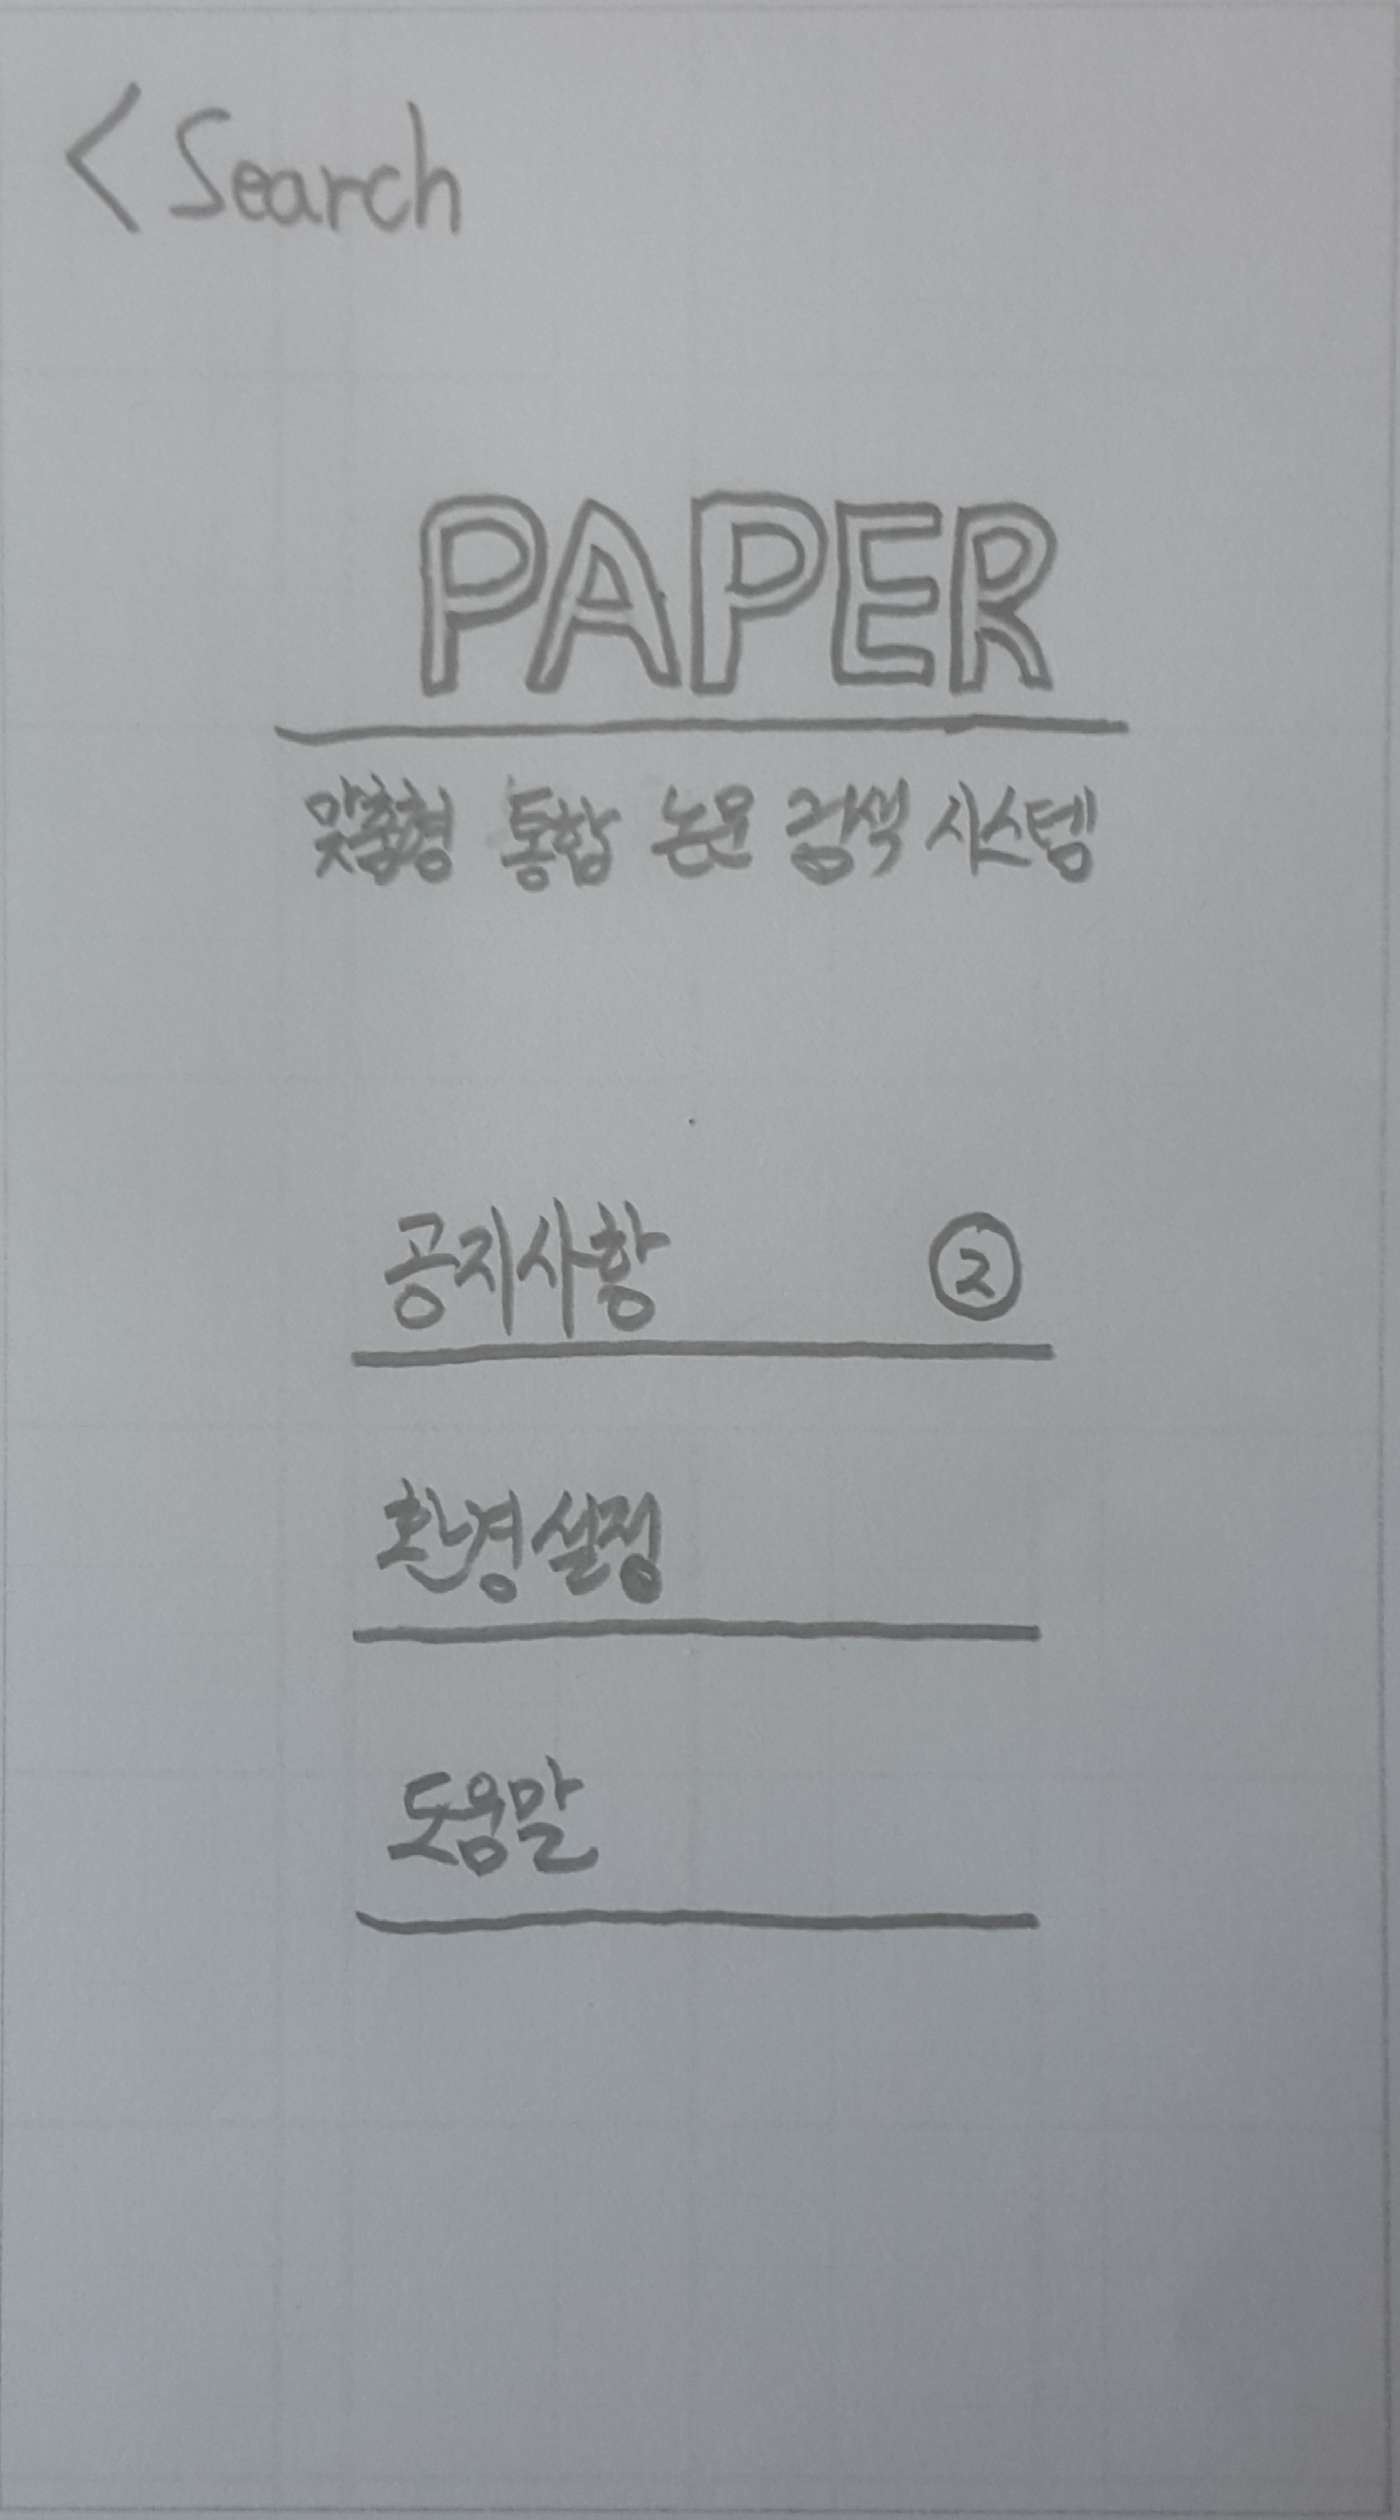 < Search
PAPER
맞춤형 통합 논문 검색 시스템
공지사항 ②
환경설정
도움말